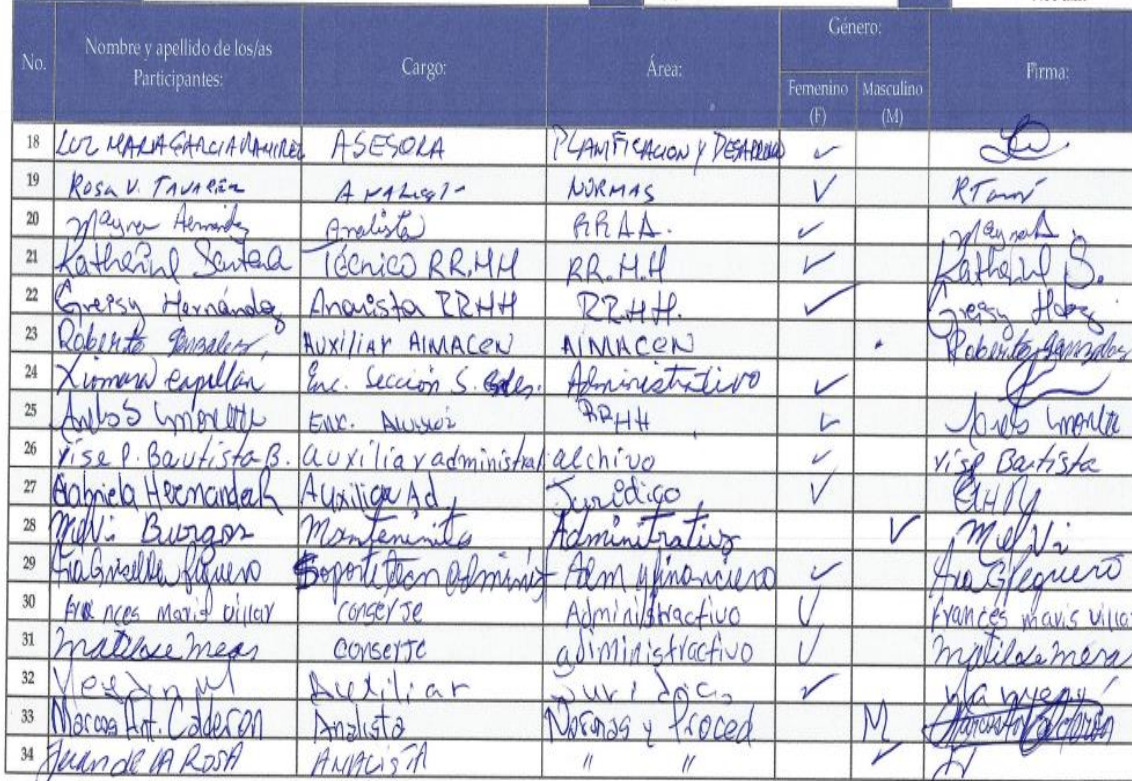 No. Nombre y apellido de los/as Participantes: Cargo: Área: Género: Femenino (F) Masculino (M) Firma:
18 LUZ MARIA GARCIA RAMIREZ ASESORA PLANIFICACION Y DESARROLLO ✓
19 ROSA V. TAVAREZ NORMAS ✓
20 Mayra Hernandez Analista RRAA. ✓
21 Katherine Santana Técnico RR.HH RR.H.H ✓ Katherine S.
22 Greisy Hernández RRHH RRHH. ✓ Greisy Hdez
23 Roberto Gonzalez Auxiliar AlMACEN AlMACEN Roberto Gonzalez
24 Xiomara Capellan Enc. Sección S. Administrativo ✓
25 Enc. RRHH ✓
26 P. Bautista B. auxiliar administrat alchivo ✓ Bautista
27 Gabriela Hernandez Auxiliar Ad Jurídico ✓
28 Melvi Burgos Administrativo ✓ Melvi
29 Adm y financiero ✓
30 Frances maris villar conserje Administractivo ✓ Frances maris villar
31 matilde meas conserje administractivo ✓ matilde meas
32 Auxiliar Juridica ✓
33 Marcos Ant. Calderon Analista Normas y Proced M
34 Juan de lA ROSA ANAlISTA " " ✓